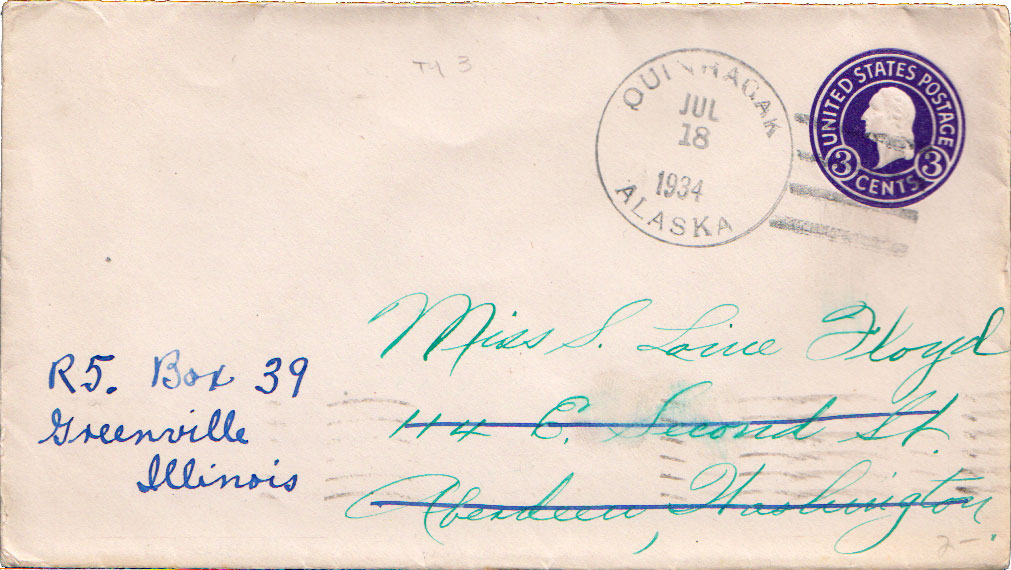 Ty 3
QUINHAGAK
JUL
18
1934
ALASKA
UNITED STATES POSTAGE
3 CENTS 3
Miss S. Loice Floyd
114 E. Second St.
Aberdeen, Washington
R5. Box 39
Greenville
Illinois
2-